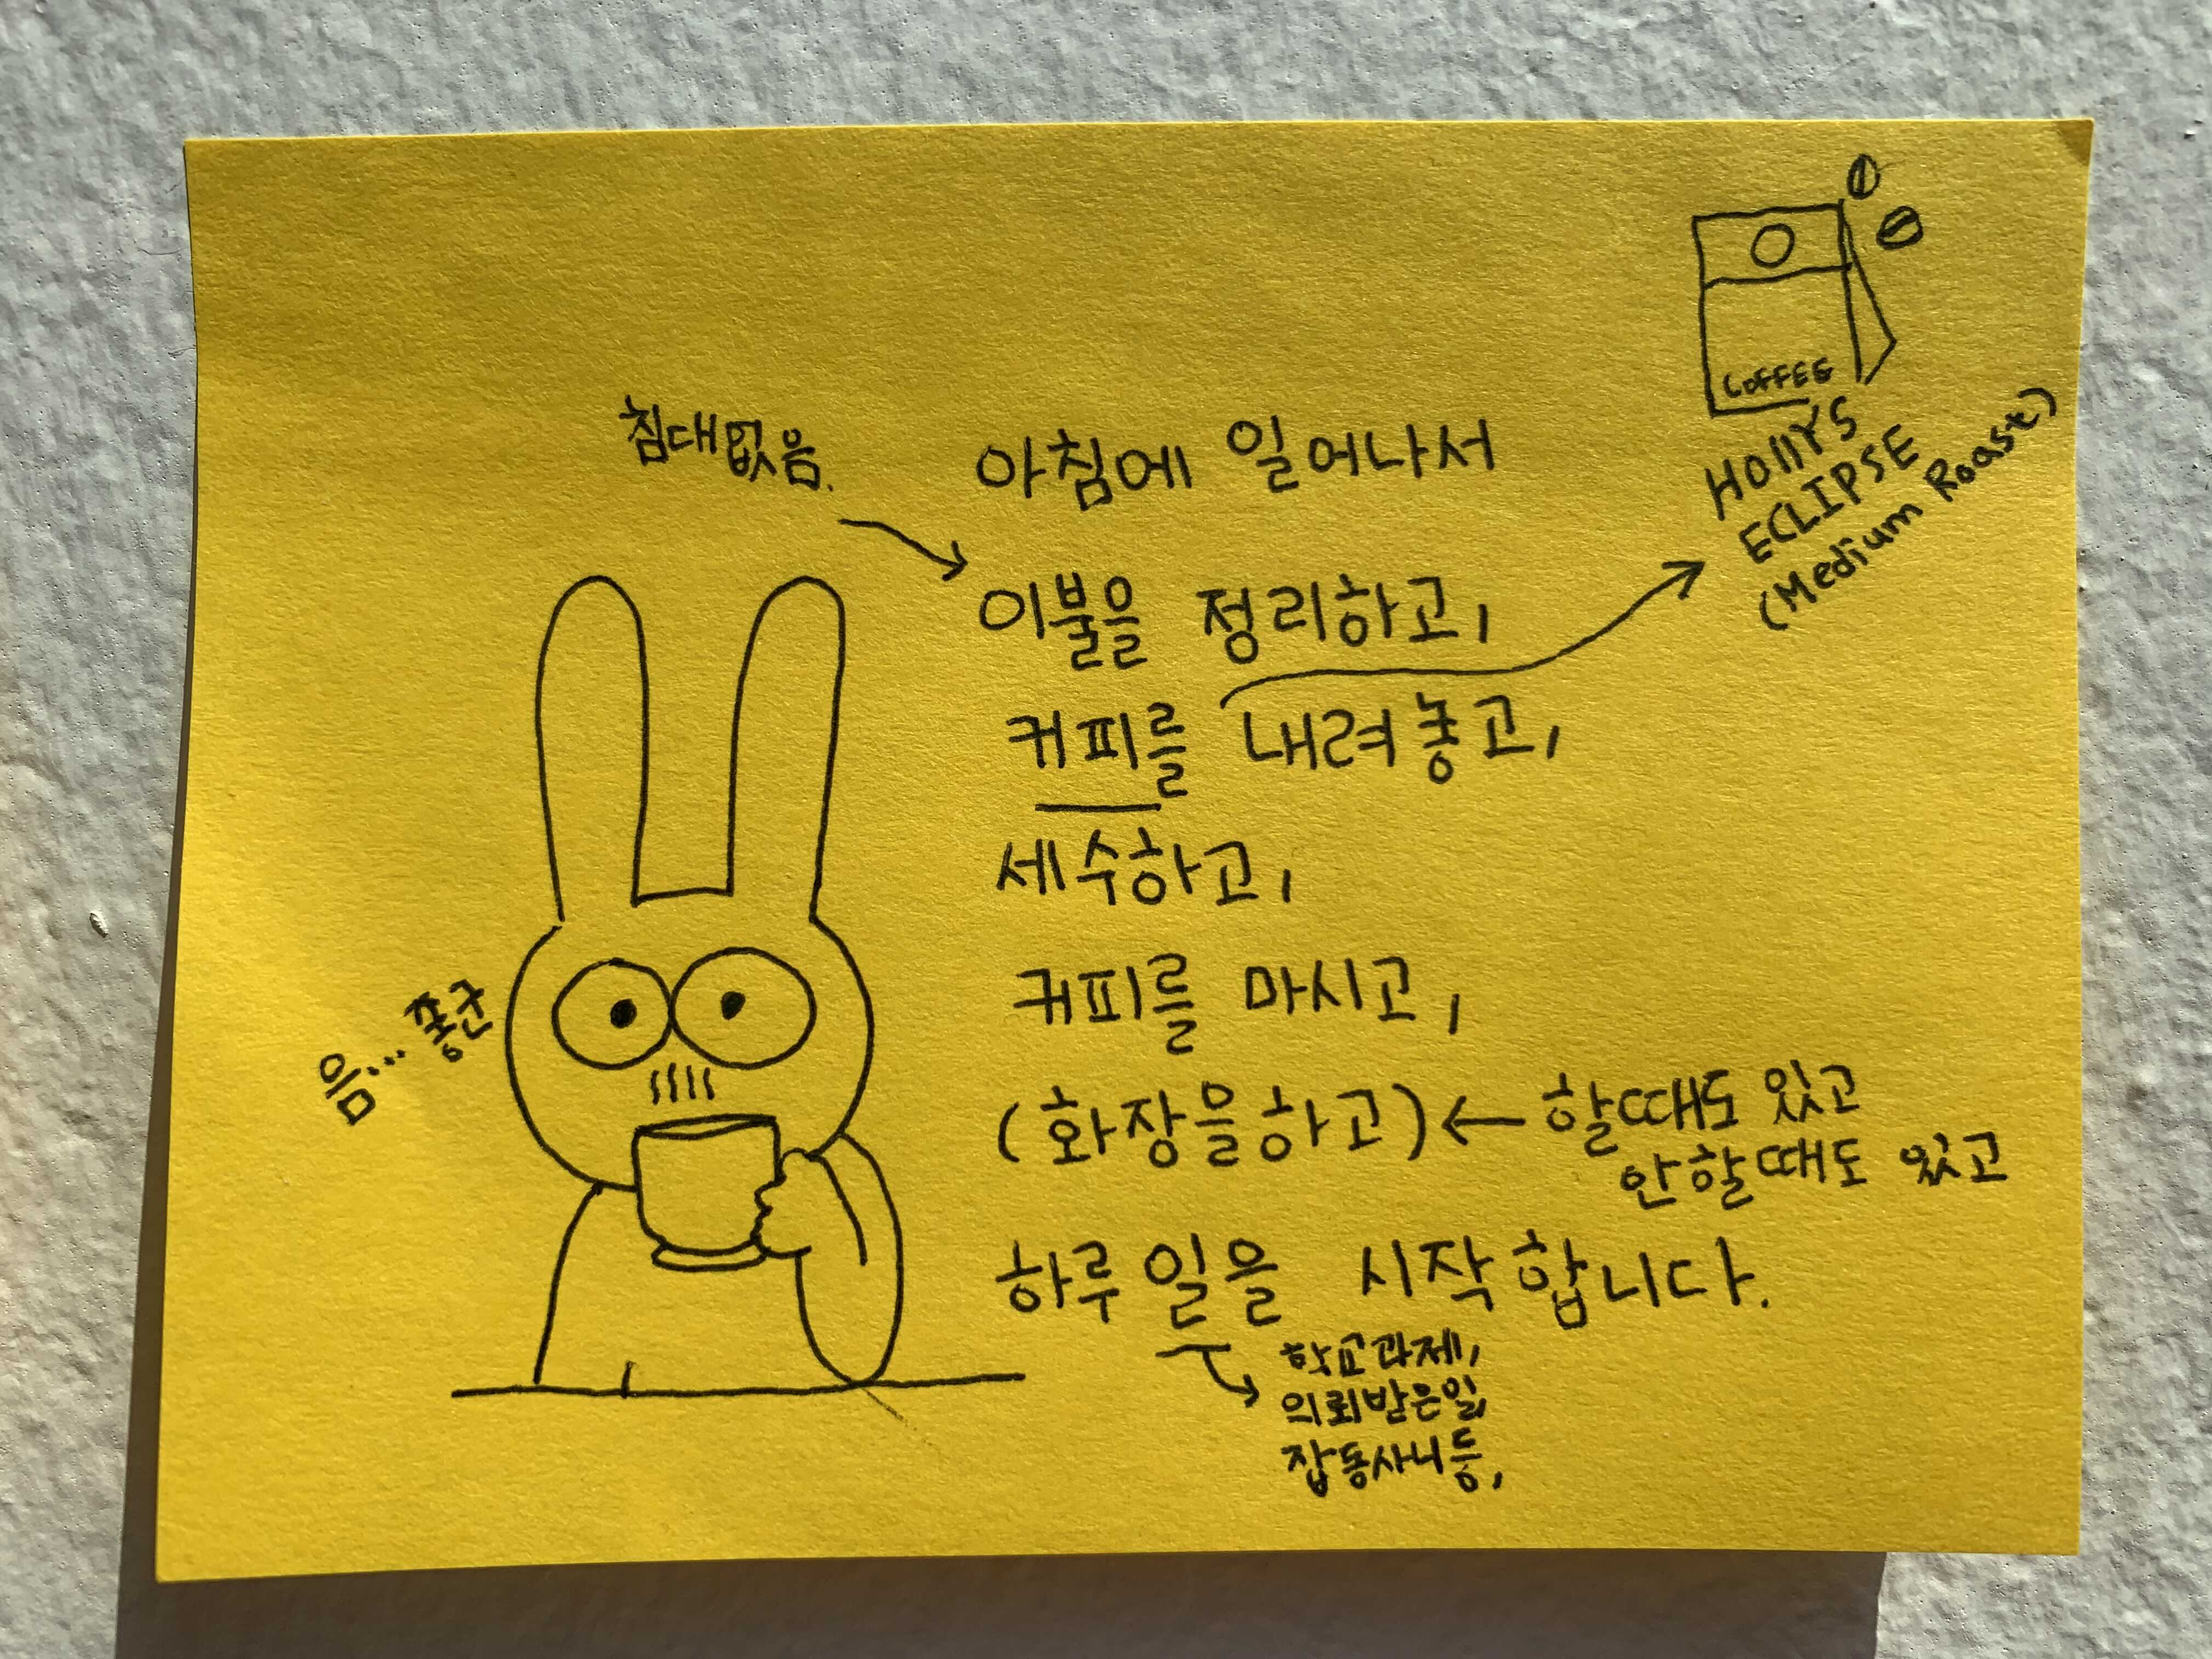 COFFEE
HOLLYS
ECLIPSE
(Medium Roast)
침대없음.
아침에 일어나서
이불을 정리하고,
커피를 내려놓고,
세수하고,
커피를 마시고,
음... 좋군
(화장을하고) ← 할때도 있고
안할때도 있고
하루일을 시작합니다.
학교과제,
의뢰받은일,
잡동사니등,